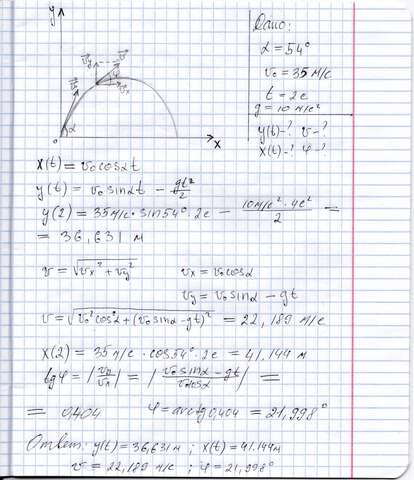 y
Дано:
α = 54°
v₀ = 35 м/с
t = 2с
g = 10 м/с²
y(t) - ? v - ?
x(t) - ? φ - ?
v₀
vy
v
φ
vx
α
0
x
x(t) = v₀cosαt
y(t) = v₀ sinαt - gt²/2
y(2) = 35м/с · sin54° · 2с - 10м/с² · 4с²/2 =
= 36,631 м
v = √(vx² + vy²)
vx = v₀cosα
vy = v₀ sinα - gt
v = √(v₀² cos²α + (v₀ sinα - gt)²) = 22,189 м/с
x(2) = 35 м/с · cos54° · 2с = 41.144 м
tgφ = |vy/vx| = |v₀ sinα - gt/v₀cosα| =
= 0,404 φ = arctg 0,404 = 21,998°
Ответ: y(t) = 36,631 м ; x(t) = 41.144м
v = 22,189 м/с ; φ = 21,998°